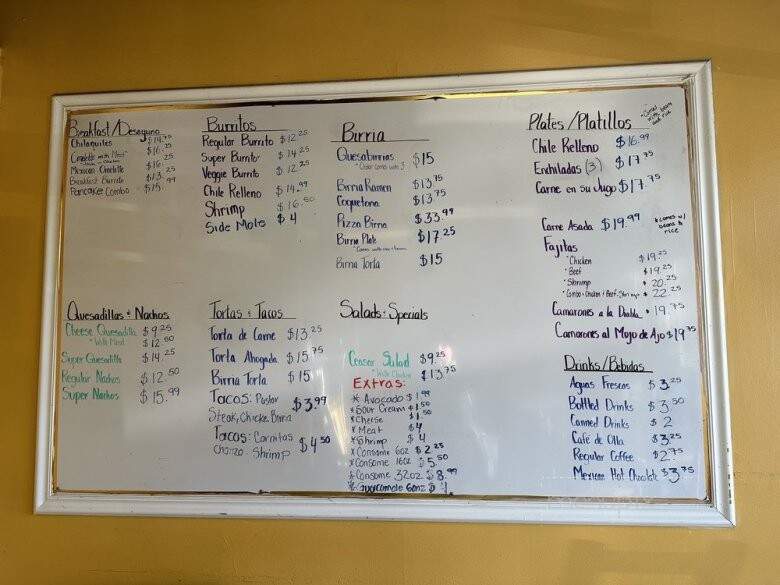 Breakfast/Desayuno
Chilaquiles $14.75
Omelette with Meat $16.25
Mexican Omelette $16.25
Breakfast Burrito $13.25
Pancake Combo $15.99
Burritos
Regular Burrito $12.25
Super Burrito $14.25
Veggie Burrito $12.25
Chile Relleno $14.99
Shrimp $16.50
Side Mole $4
Birria
Quesabirrias $15
*Order comes with 3
Birria Ramen $13.75
Coquetona $13.75
Pizza Birria $33.99
Birria Plate $17.25
Birria Torta $15
Plates/Platillos
*Comes with beans and rice
Chile Relleno $16.99
Enchiladas (3) $17.75
Carne en su Jugo $17.75
Carne Asada $19.99
*comes w/ beans & rice
Fajitas
*Chicken $19.25
*Beef $19.25
*Shrimp 20.25
*Combo: Chicken/Beef/Shrimp 22.25
Camarones a la Diabla $19.75
Camarones al Mojo de Ajo $19.75
Quesadillas & Nachos
Cheese Quesadilla $9.25
*With Meat $12.50
Super Quesadilla $14.25
Regular Nachos $12.50
Super Nachos $15.99
Tortas & Tacos
Torta de Carne $13.25
Torta Ahogada $15.75
Birria Torta $15
Tacos: Pastor
Steak, Chicken, Birria $3.99
Tacos: Carnitas
Chorizo Shrimp $4.50
Salads & Specials
Ceasar Salad $9.25
*With Chicken $13.75
Extras:
*Avocado $1.99
*Sour Cream $1.50
*Cheese $1.50
*Meat $4
*Shrimp $4
*Consome 6oz $2.25
*Consome 16oz $5.50
*Consome 32oz $8.99
*Guacamole 6onz
Drinks/Bebidas
Aguas Frescas $3.25
Bottled Drinks $3.50
Canned Drinks $2
Café de Olla $3.25
Regular Coffee $2.75
Mexican Hot Chocolate $3.75